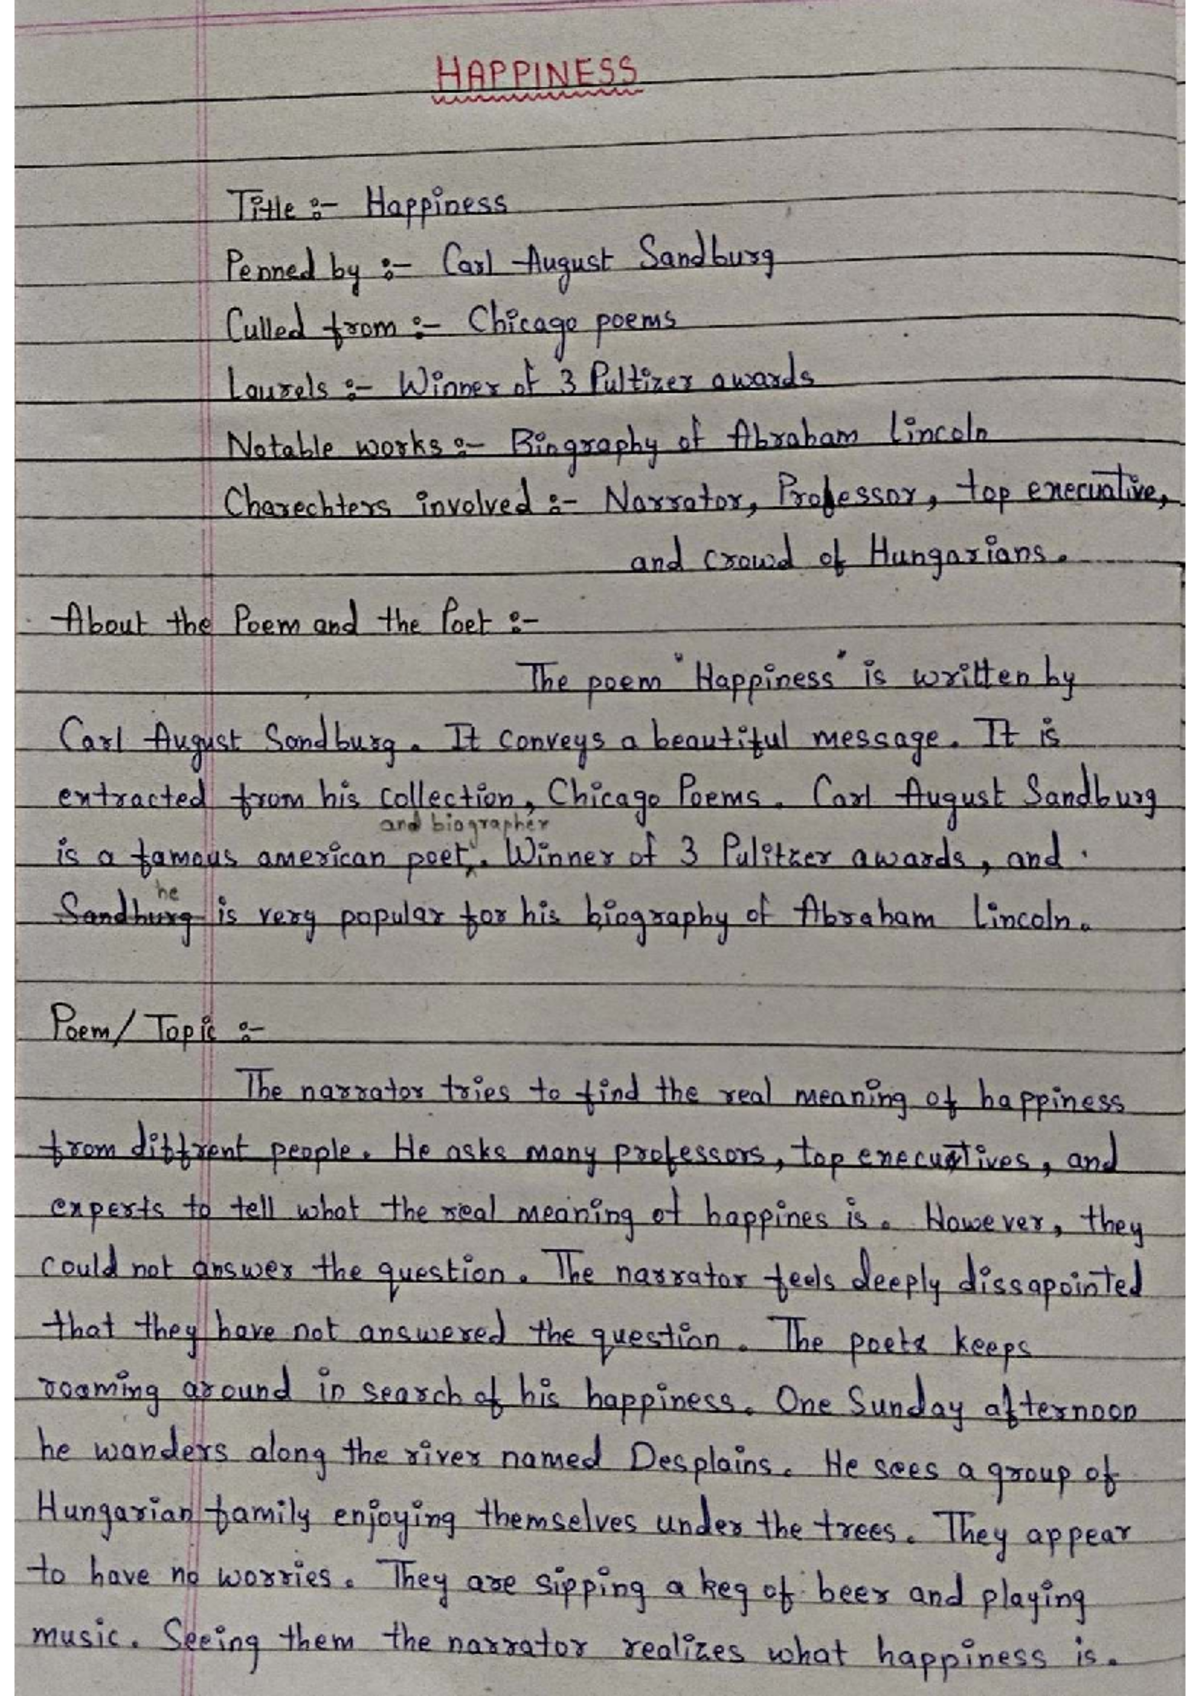 HAPPINESS
Title :- Happiness
Penned by :- Carl August Sandburg
Culled from :- Chicago poems
Laurels :- Winner of 3 Pultizer awards
Notable works :- Biography of Abraham Lincoln
Charechters involved :- Narrator, Professor, top execuative,
and crowd of Hungarians.
About the Poem and the Poet :-
The poem "Happiness" is written by
Carl August Sandburg. It conveys a beautiful message. It is
extracted from his collection, Chicago Poems. Carl August Sandburg
and biographer
is a famous american poet. Winner of 3 Pulitzer awards, and
he
Sandburg is very popular for his biography of Abraham Lincoln.
Poem/Topic :-
The narrator tries to find the real meaning of happiness
from diffrent people. He asks many professors, top execuatives, and
experts to tell what the real meaning of happines is. However, they
could not answer the question. The narrator feels deeply dissapointed
that they have not answered the question. The poet keeps
roaming around in search of his happiness. One Sunday afternoon
he wanders along the river named Desplains. He sees a group of
Hungarian family enjoying themselves under the trees. They appear
to have no worries. They are sipping a keg of beer and playing
music. Seeing them the narrator realizes what happiness is.